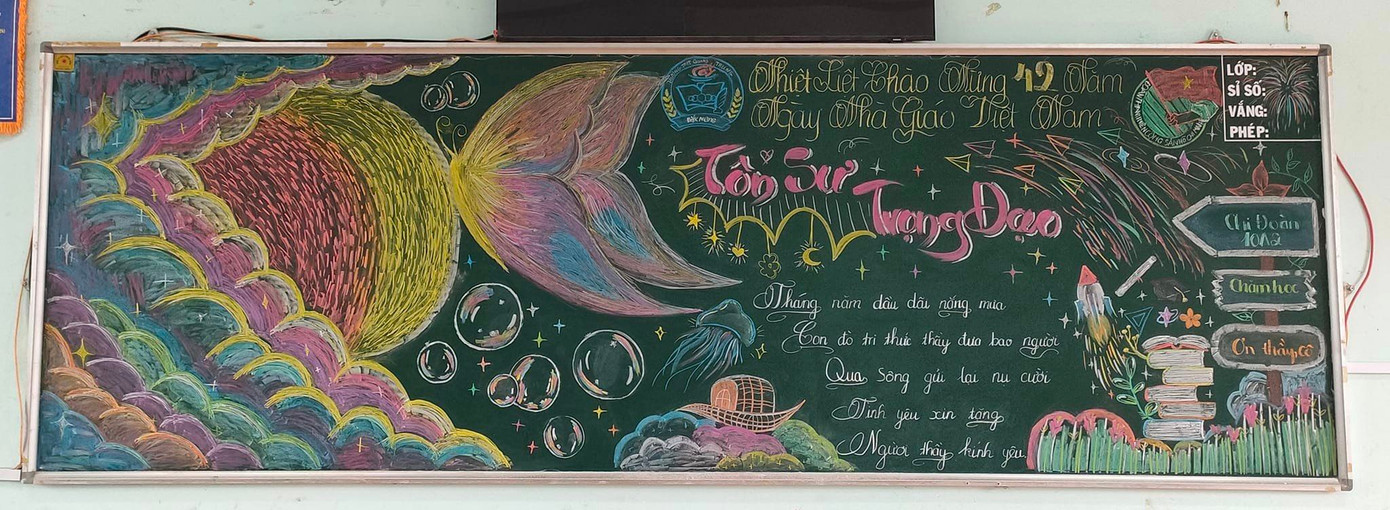 Nhiệt Liệt Chào Mừng 42 Năm
Ngày Nhà Giáo Việt Nam
Tôn Sư
Trọng Đạo
Tháng năm dầu dãi nắng mưa
Con đò tri thức thầy đưa bao người
Qua sông gửi lại nụ cười
Tình yêu xin tặng
Người thầy kính yêu
LỚP:
SĨ SỐ:
VẮNG:
PHÉP:
Chi Đoàn
10A2
Chăm học
Ơn thầy cô